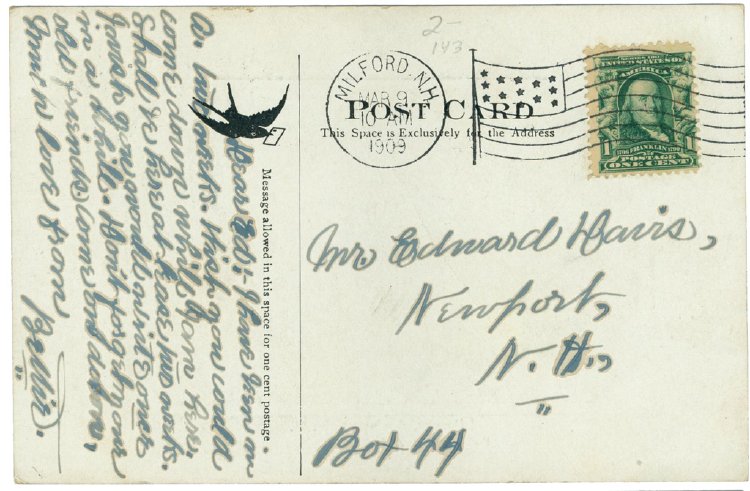 2-
143
MILFORD, N.H.
MAR 9
10 AM
1909
POST CARD
This Space is Exclusively for the Address
SERIES 1902
UNITED STATES OF
AMERICA
1 FRANKLIN
POSTAGE
ONE CENT
Mr Edward Davis,
Newport,
N. H.,
Box 44
Message allowed in this space for one cent postage.
Dear Ed:- Have been on
Wish you would
come down while here.
Shall be here at least two weeks.
I wish you would write once
in a while. Don't forget your
old friends come and
love from
Nellie.